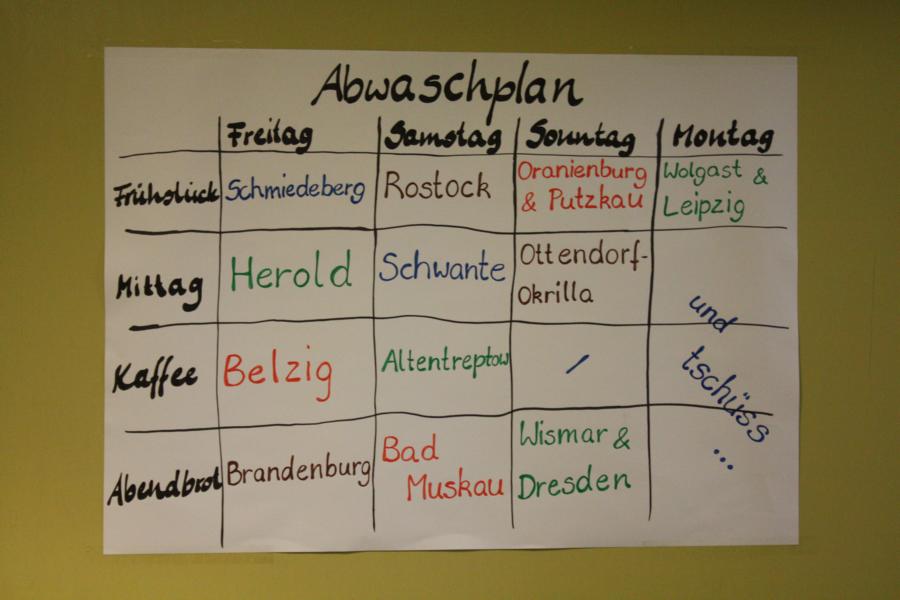 Abwaschplan
Freitag Samstag Sonntag Montag
Frühstück Schmiedeberg Rostock Oranienburg & Putzkau Wolgast & Leipzig
Mittag Herold Schwante Ottendorf-Okrilla
Kaffee Belzig Altentreptow /
Abendbrot Brandenburg Bad Muskau Wismar & Dresden
und
tschüss
...